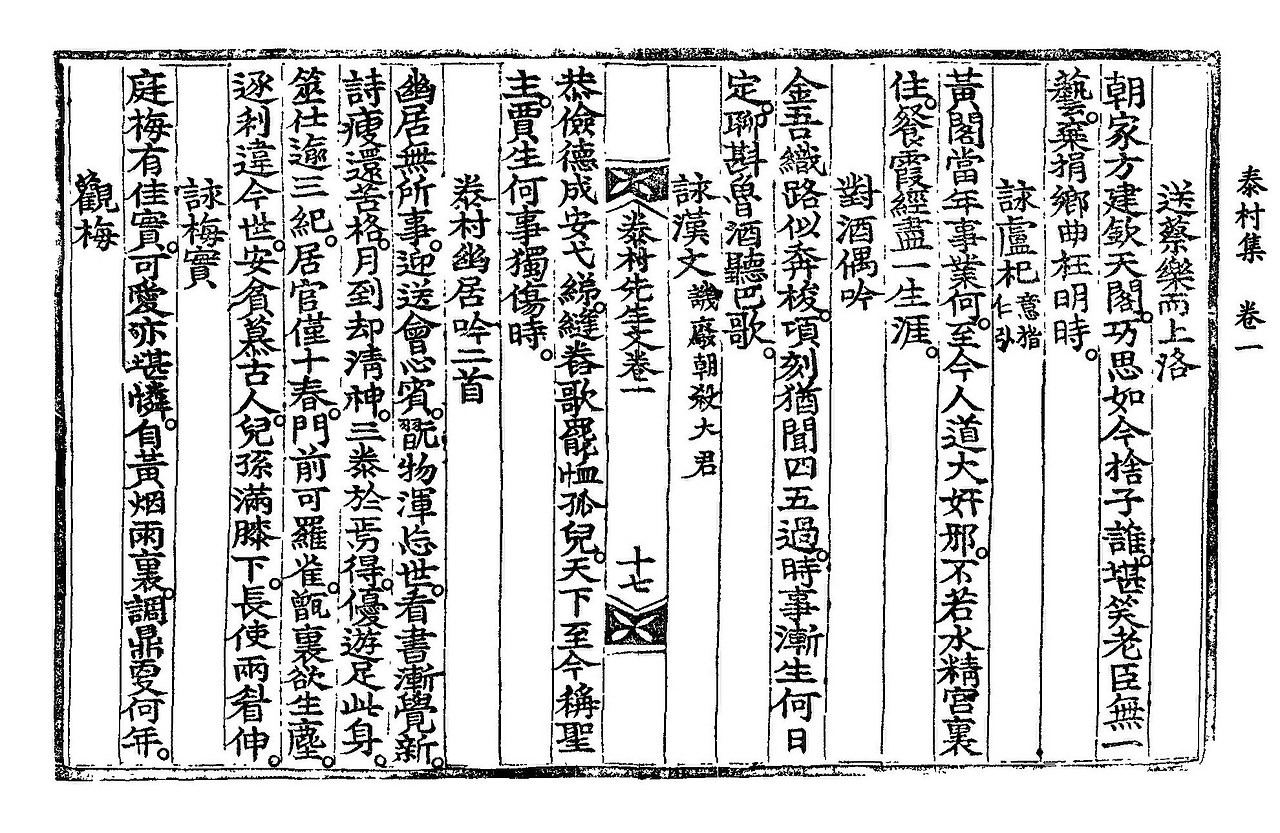 泰村集 卷一
送蔡樂而上洛
朝家方建欽天閣。巧思如今捨子誰。堪笑老臣無一
藝。棄捐鄉曲枉明時。
詠盧杞 意指仁弘
黃閣當年事業何。至今人道大奸邪。不若水精宮裏
住。餐霞經盡一生涯。
對酒偶吟
金吾織路似奔梭。項刻猶聞四五過。時事漸生何日
定。聊斟魯酒聽巴歌。
詠漢文 譏廢朝殺大君
泰村先生文卷一 十七
恭儉德成安弋綈。縫舂歌罷恤孤兒。天下至今稱聖
主。賈生何事獨傷時。
泰村幽居吟二首
幽居無所事。迎送會心賓。翫物渾忘世。看書漸覺新。
詩瘦還苦格。月到却淸神。三泰於焉得。優遊足此身。
筮仕逾三紀。居官僅十春。門前可羅雀。甑裏欲生塵。
逐利違今世。安貧慕古人。兒孫滿膝下。長使兩眉伸。
詠梅實
庭梅有佳實。可愛亦堪憐。自黃烟雨裏。調鼎更何年。
觀梅